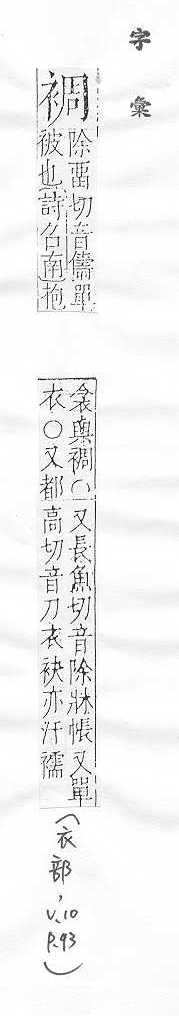 字彙
裯除畱切音儔單
被也詩召南抱
衾與裯○又長魚切音除牀帳又單
衣○又都高切音刀衣袂亦汗襦
(衣部,
V.10
P.93)